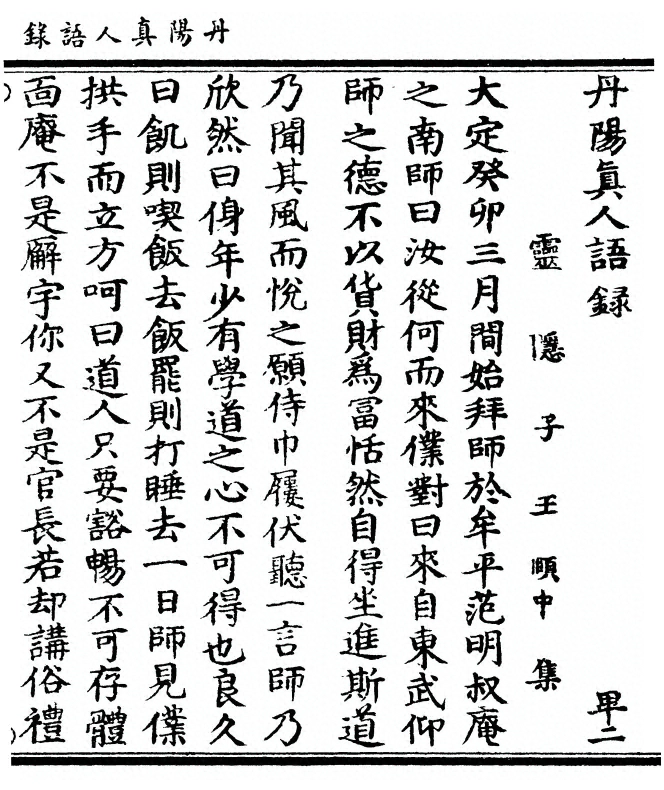 丹陽真人語錄
丹陽眞人語録 甲二
靈隱子王頤中集
大定癸卯三月間始拜師於牟平范明叔庵
之南師曰汝從何而來僕對曰來自東武仰
師之德不以貨財爲冨恬然自得坐進斯道
乃聞其風而悅之願侍巾屨伏聽一言師乃
欣然曰身年少有學道之心不可得也良久
曰飢則喫飯去飯罷則打睡去一日師見僕
拱手而立方呵曰道人只要豁暢不可存體
面庵不是廨宇你又不是官長若却講俗禮